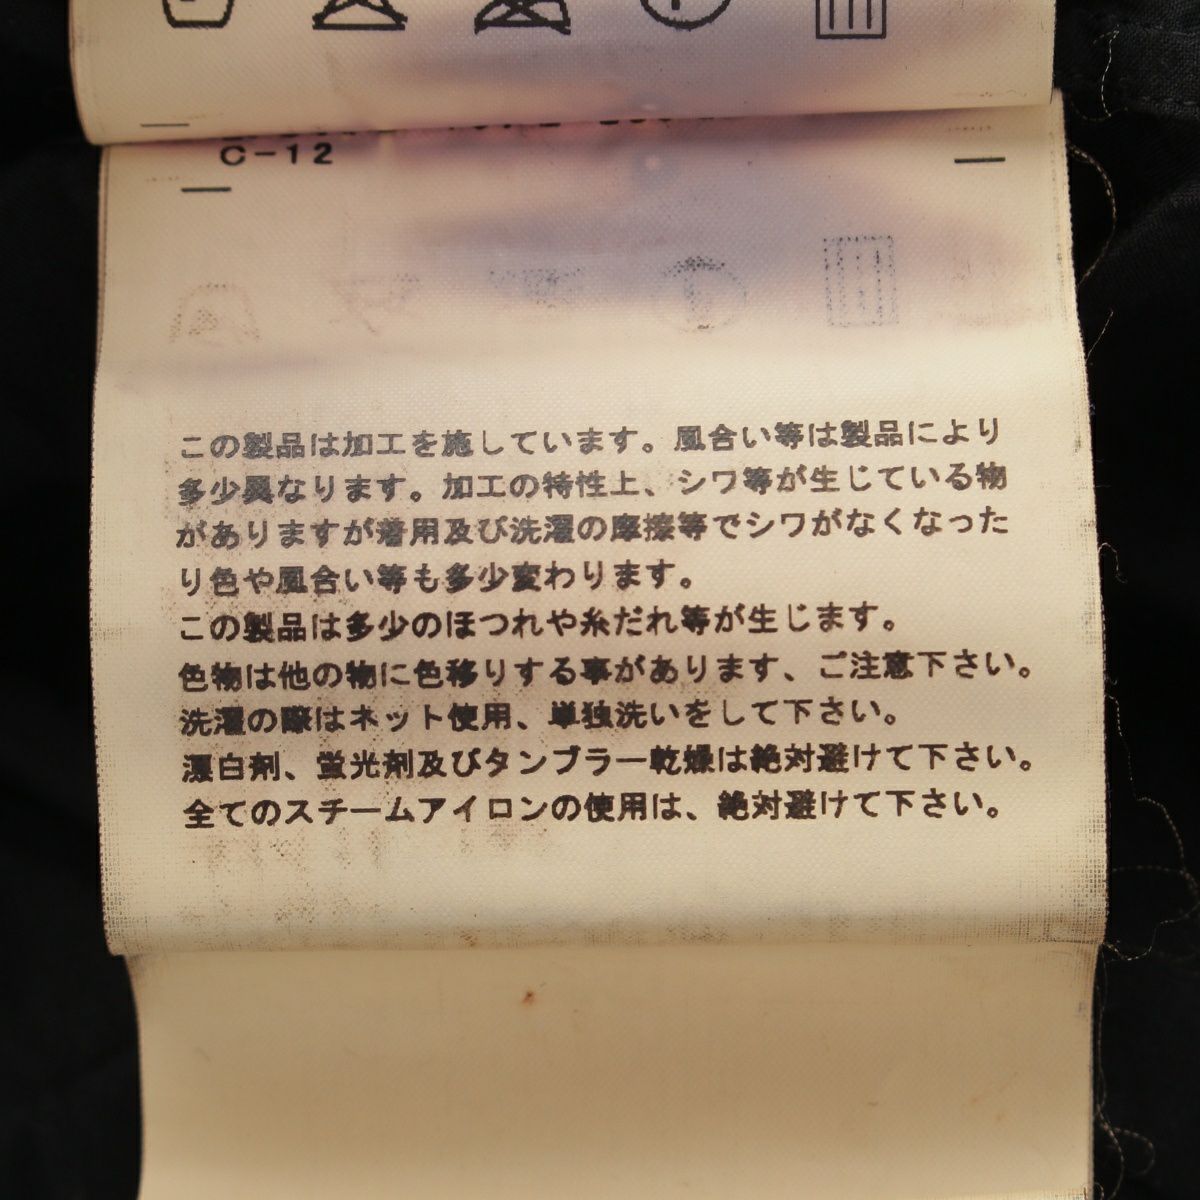 C-12
この製品は加工を施しています。風合い等は製品により
多少異なります。加工の特性上、シワ等が生じている物
がありますが着用及び洗濯の摩擦等でシワがなくなった
り色や風合い等も多少変わります。
この製品は多少のほつれや糸だれ等が生じます。
色物は他の物に色移りする事があります、ご注意下さい。
洗濯の際はネット使用、単独洗いをして下さい。
漂白剤、蛍光剤及びタンブラー乾燥は絶対避けて下さい。
全てのスチームアイロンの使用は、絶対避けて下さい。